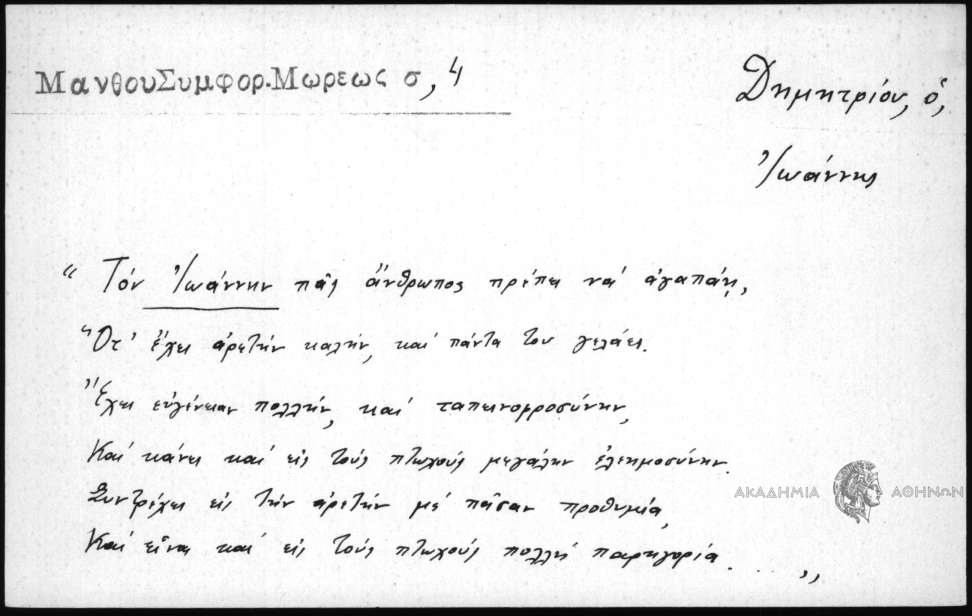 Μανθου Συμφορ. Μωρεως σ, 4
Δημητρίου, ὁ,
Ἰωάννης
“ Τόν Ἰωάννην πᾶς ἄνθρωπος πρέπει νά ἀγαπάῃ,
Ὅτ' ἔχει ἀρετήν καλήν, καί πάντα του γελάει.
Ἔχει εὐγένειαν πολλήν, καί ταπεινοφροσύνην,
Καί κάνει καί εἰς τούς πτωχούς μεγάλην ἐλεημοσύνην.
Συντρέχει εἰς τήν ἀρετήν μέ πᾶσαν προθυμία,
Καί εἶναι καί εἰς τούς πτωχούς πολλή παρηγορία . . . ,,
ΑΚΑΔΗΜΙΑ ΑΘΗΝΩΝ